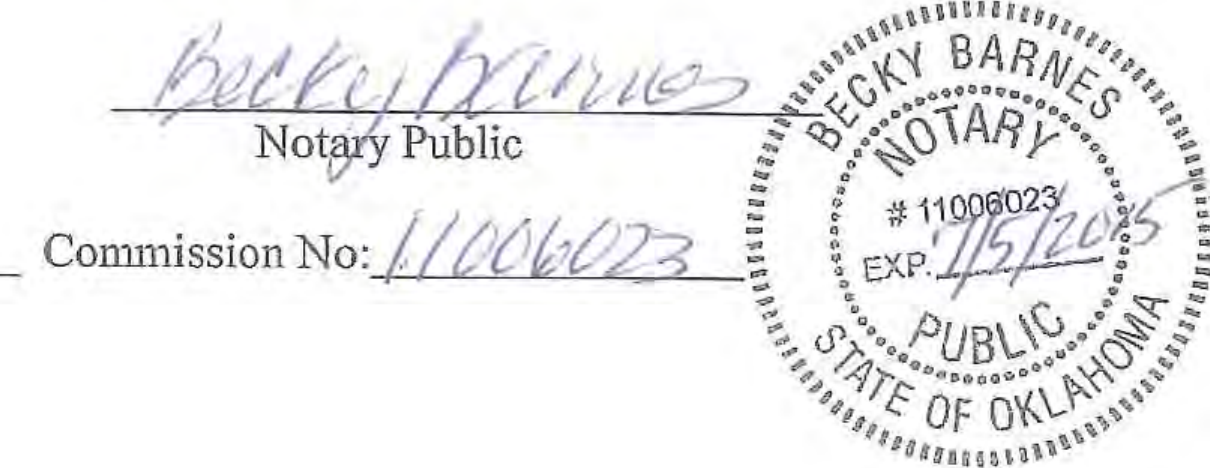 Becky Barnes
Notary Public
Commission No: 11006023
BECKY BARNES
NOTARY
# 11006023
EXP. 7/5/2015
PUBLIC
STATE OF OKLAHOMA